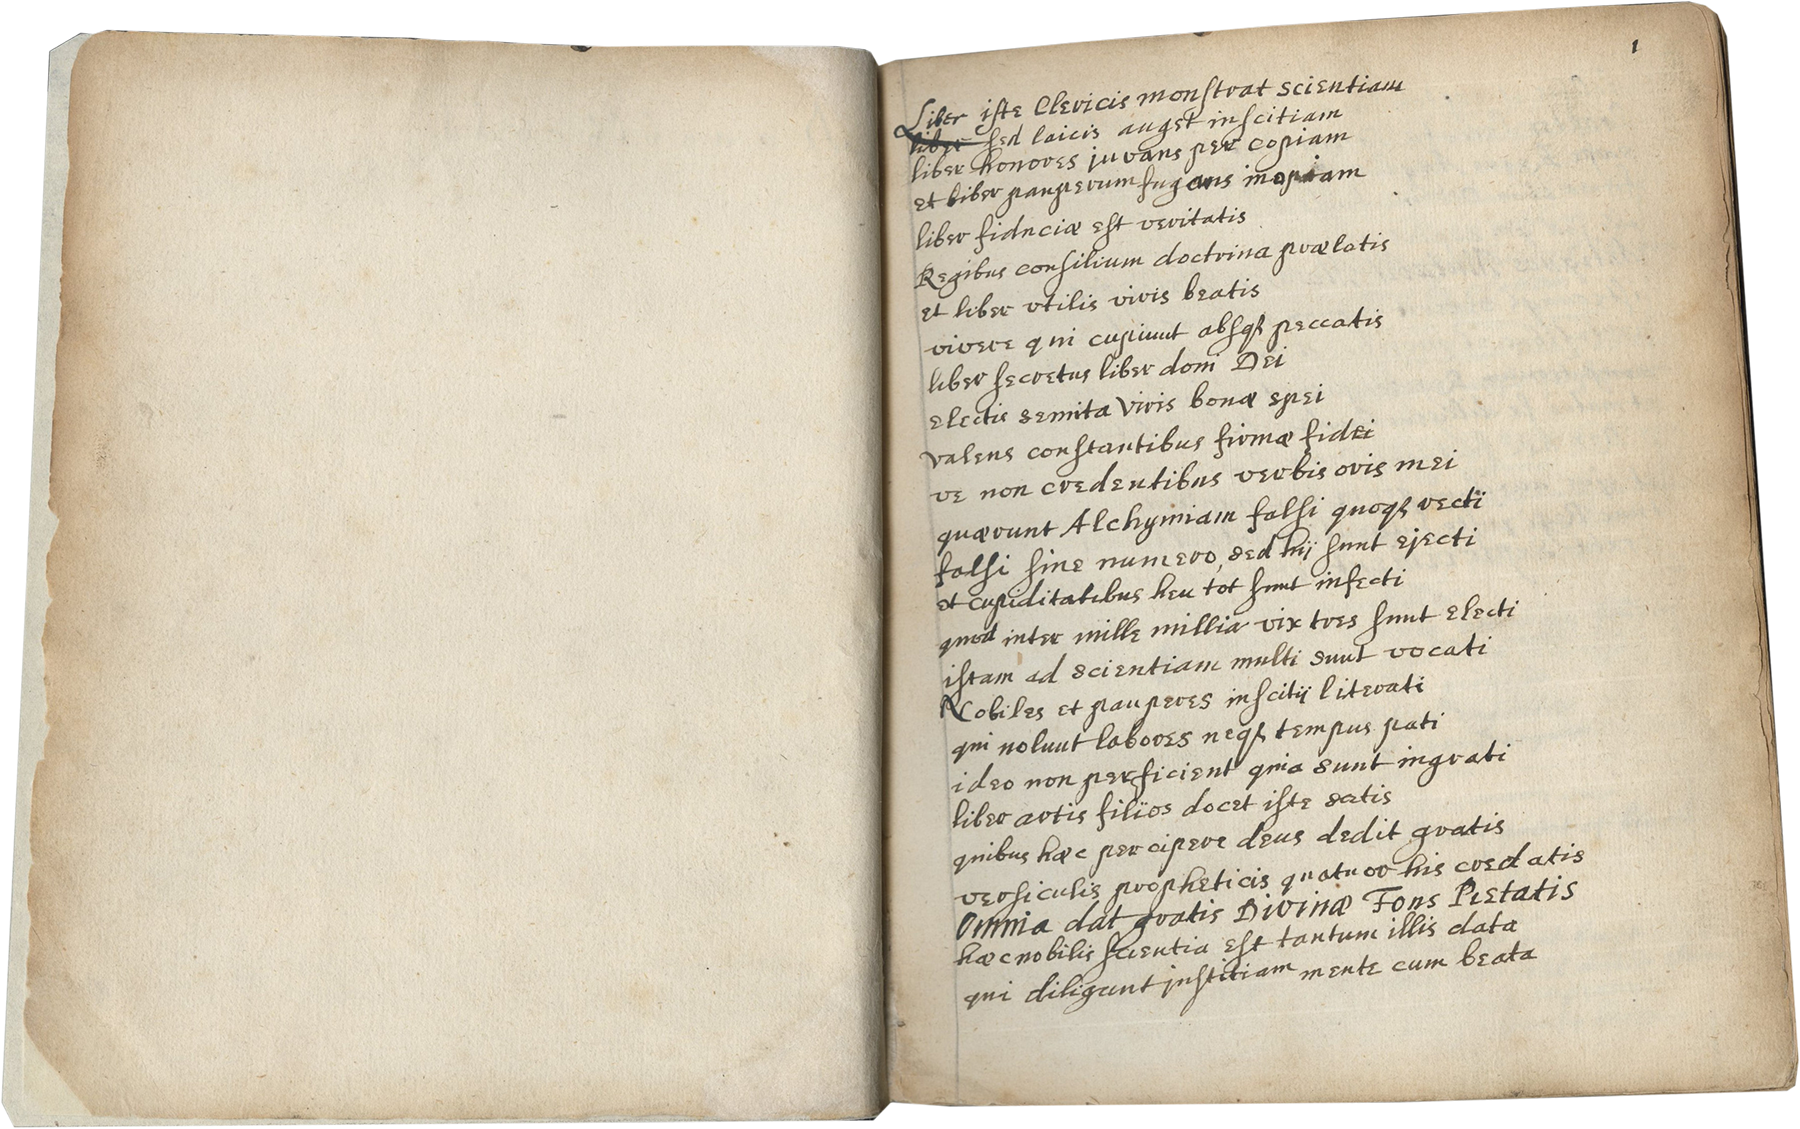 1
Liber iste Clericis monstrat scientiam
liber sed laicis auget inscitiam
liber honores juvans per copiam
et liber pauperum fugans inopiam
liber fiduciæ est veritatis
Regibus consilium doctrina prælatis
et liber vtilis viris beatis
vivere qui cupiunt absq₃ peccatis
liber secretus liber doni Dei
electis semita Viris bonæ spei
valens constantibus firmæ fidei
ve non credentibus verbis oris mei
quærunt Alchymiam falsi quoq₃ recti
falsi sine numero, sed hij sunt ejecti
et cupiditatibus heu tot sunt infecti
quod inter mille millia vix tres sunt electi
istam ad scientiam multi sunt vocati
Nobiles et pauperes inscitij literati
qui nolunt labores neq₃ tempus pati
ideo non perficient quia sunt ingrati
liber artis filios docet iste satis
quibus hæc percipere deus dedit gratis
versiculis propheticis quatuor his credatis
Omnia dat gratis Divinæ Fons Pietatis
hæc nobilis scientia est tantum illis data
qui diligunt justitiam mente cum beata